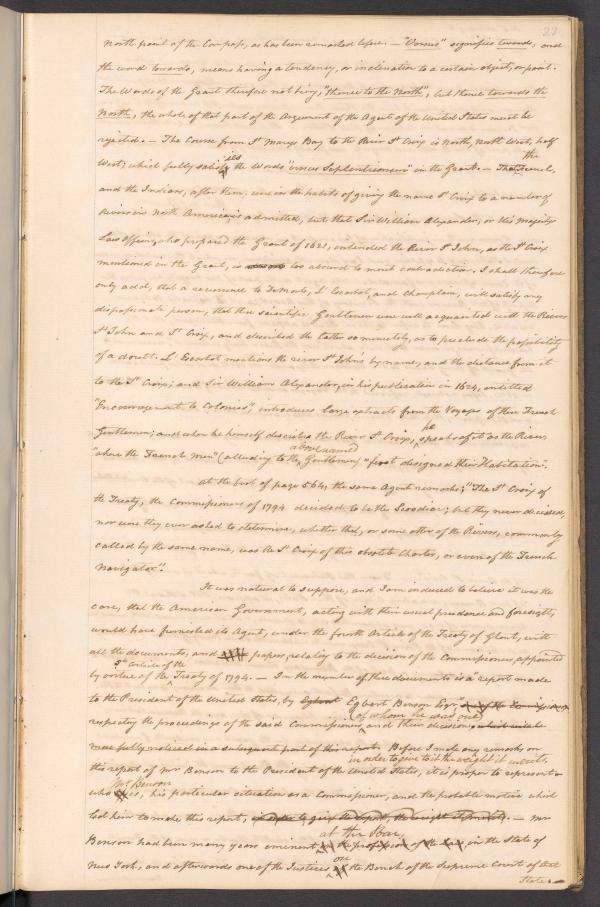 23
North point of the Compass, as has been remarked before. — "Versus" signifies towards, and
the word towards, means having a tendency, or inclination to a certain object, or point.
The Words of the Grant therefore not being, "thence to the North", but thence towards the
North, the whole of that part of the Argument of the Agent of the United States must be
rejected. — The Course from St Marys Bay to the River St Croix is North, North West, half
West; which fully satisfies the Words "versus Septentrionem" in the Grant. — That the French,
and the Indians, after them, were in the habits of giving the name St Croix to a number of
Rivers in North America is admitted, but that Sir William Alexander, or his Majestys
Law Officers, who prepared the Grant of 1621, intended the River St John, as the St Croix
mentioned in the Grant, is too absurd to merit contradiction. I shall therefore
only add, that a recurrence to DeMonts, L'Escarbot, and Champlain, will satisfy any
dispassionate person, that these scientific Gentlemen were well acquainted with the Rivers
St John and St Croix, and described the latter so minutely, as to preclude the possibility
of a doubt. L'Escarbot mentions the river St John's by name, and the distance from it
to the St Croix; and Sir William Alexander, in his publication in 1624, entitled
"Encouragement to Colonies", introduces large extracts from the Voyages of these French
Gentlemen; and when he himself describes the River St Croix, he speaks of it as the River
"where the French men" (alluding to the above named Gentlemen) "first designed their Habitation".
At the foot of page 564, the same Agent remarks; "The St Croix of
the Treaty, the Commissioners of 1794 decided to be the Scoodiac; but they never decided,
nor were they ever asked to determine, whether that, or some other of the Rivers, commonly
called by the same name, was the St Croix of this obsolete Charter, or even of the French
Navigator".
It was natural to suppose, and I am induced to believe it was the
case, that the American Government, acting with their usual prudence and foresight,
would have furnished its Agent, under the fourth Article of the Treaty of Ghent, with
all the documents, and papers, relating to the decision of the Commissioners, appointed
by virtue of the 5th Article of the Treaty of 1794. — In the number of these documents is a report made
to the President of the United States, by Egbert Egbert Benson Esqr.
respecting the proceedings of the said Commissioners, (of whom he was one) and their decision,
more fully noticed in a subsequent part of this report. Before I make any remarks on
this report of Mr Benson to the President of the United States, in order to give to it the weight it merits, it is proper to represent
who Mr. Benson is, his particular situation as a Commissioner, and the probable motive which
led him to make this report, in order to give the report, the weight it merits. — Mr
Benson had been many years eminent at the Bar, in the profession of the Law, in the State of
New York, and afterwards one of the Justices on the Bench of the Supreme Court of that
State. —